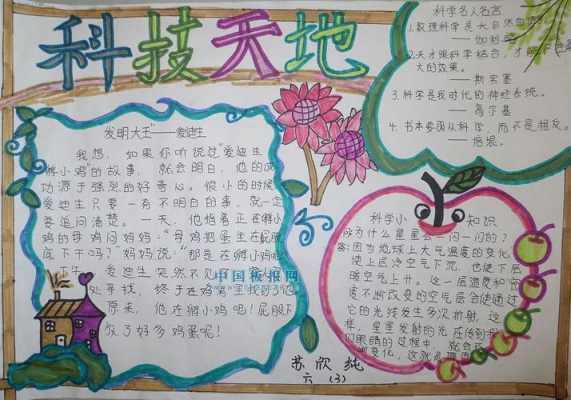 科技天地
发明大王"——爱迪生
我想,如果你听说过"爱迪生
孵小鸡"的故事,就会明白,他的成
功源于强烈的好奇心。很小的时候
爱迪生只要一有不明白的事,就一定
要追问清楚。一天,他指着正在孵小
鸡的母鸡问妈妈:"母鸡把蛋坐在屁股
底下干吗?"妈妈说:"那是在孵小鸡
爱迪生突然不见了
处寻找,终于在鸡窝里找到了他
原来,他在孵小鸡呢!屁股下
放了好多鸡蛋呢!
中国板报网
科学名人名言
1.数理科学是大自然的
——伽利略
2.天才跟科学结合,才
大的效果。
——斯宾塞
3.科学是我时代的神经系统。
——高尔基
4.书本要随从科学,而不是相反。
——培根。
科学小知识
问为什么星星会一闪一闪的?
答:因为地球上大气温度的变化
使上层冷空气下沉,也使下层
暖空气上升。这一层温度和密
度不断改变的空气层会使通过
它的光线发生多次折射,这
样,星星发射的光在传到
们眼睛的过程中,就会
变化,这就是
苏欣纯
六(3)